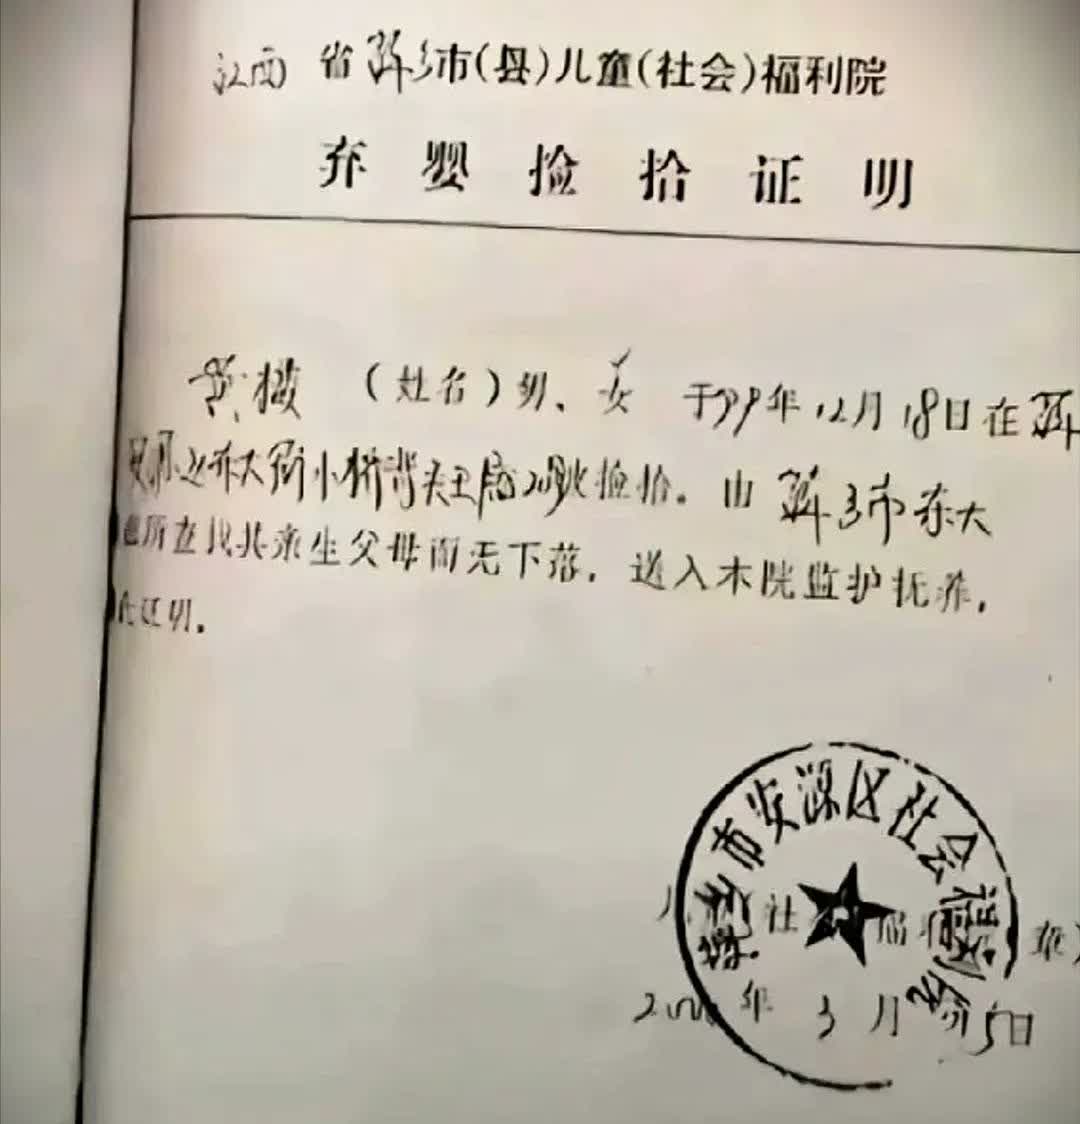 江西省萍乡市(县)儿童(社会)福利院
弃婴捡拾证明
黄 (姓名)男、女 于99年12月18日在萍
大街小桥背 捡拾。由萍乡市东大
所查找其亲生父母而无下落,送入本院监护抚养,
证明。
萍乡市安源区社会福利院
社 福
2000年3月 5日